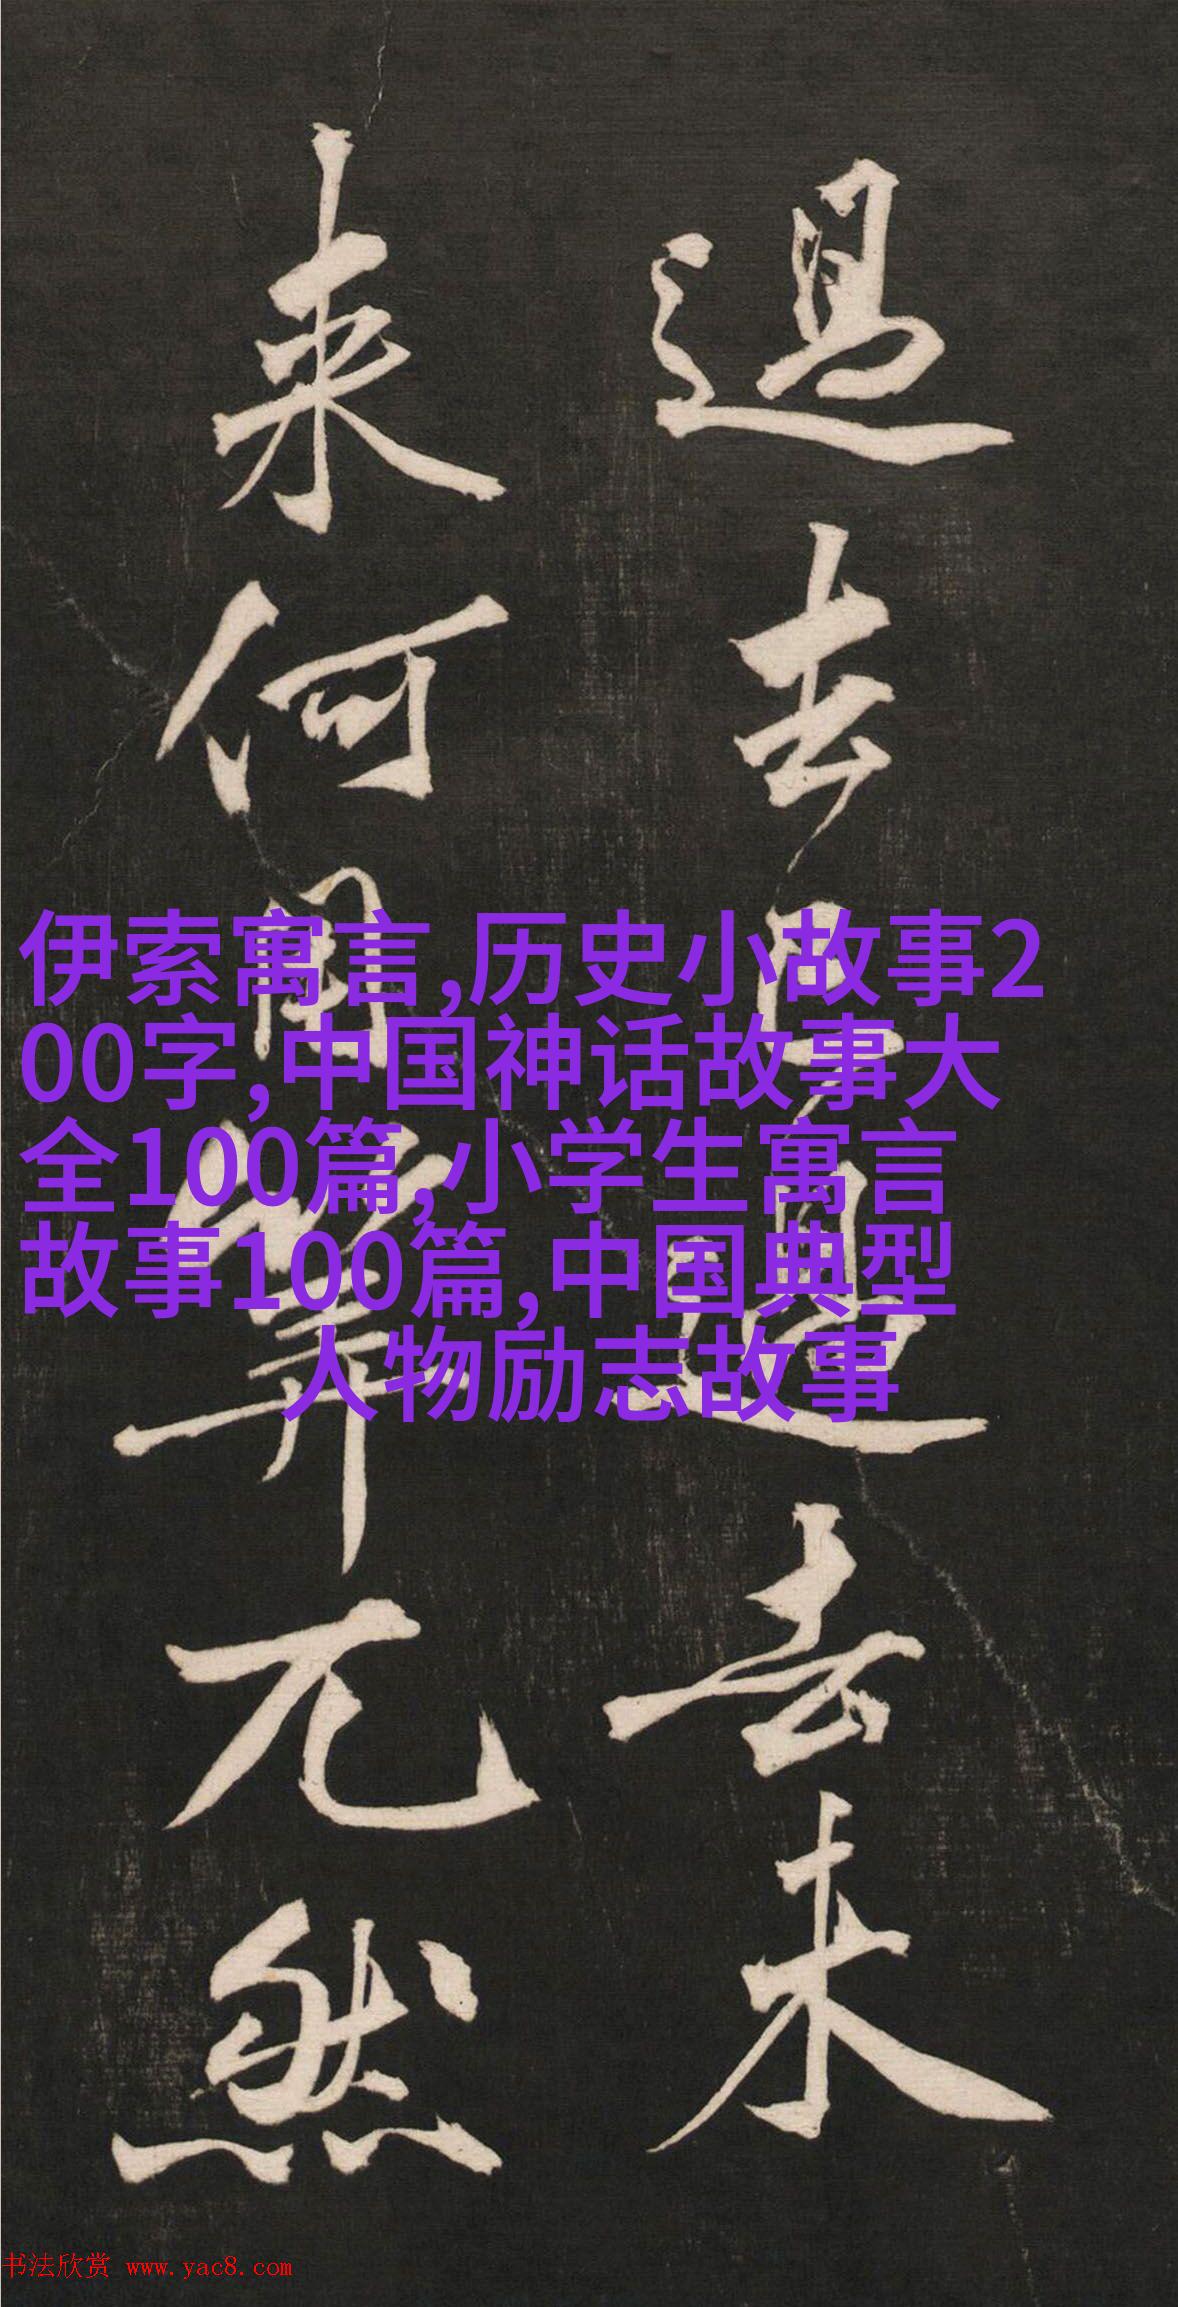 過去已過去未
来何用筭兀然
伊索寓言,历史小故事2
00字,中国神话故事大
全100篇,小学生寓言
故事100篇,中国典型
人物励志故事
书法欣赏 www.yac8.com